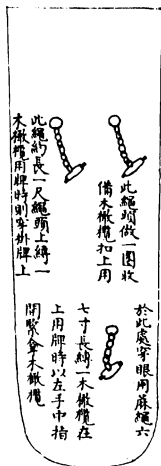 此繩頭做一圈收
備木橄欖扣上用
此繩約長一尺繩頭上縛一
木橄欖用牌時則穿掛牌上
於此處穿眼用蔴繩六
七寸長縛一木橄欖在
上用牌時以左手中指
開緊拿木橄欖